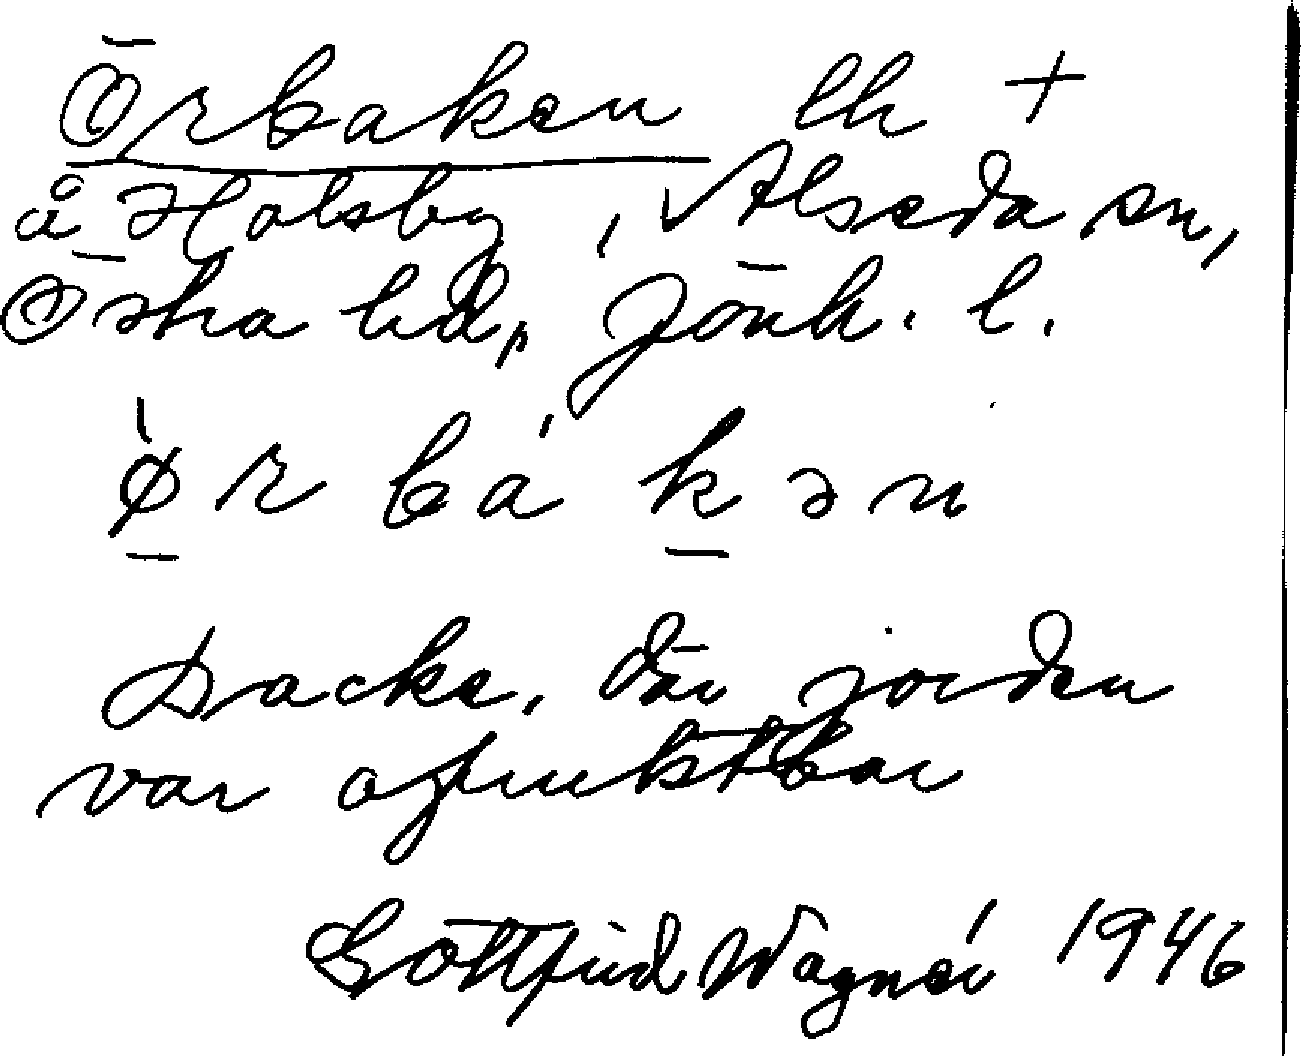 Örbaken lh +
å Holsby, Alseda sn,
Östra hd, Jönk. l.
ø̀rbákən
Backe, där jorden
var ofruktbar
Gottfrid Wagnér 1946